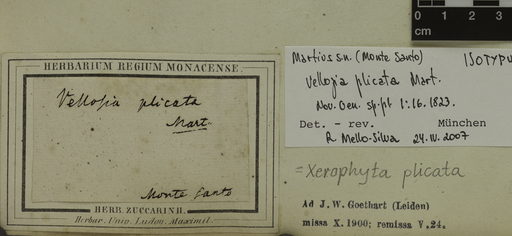 HERBARIUM REGIUM MONACENSE.
Vellosia plicata
Mart.
Monte Santo
HERB. ZUCCARINII.
Herbar. Univ. Ludov. Maximil.
0 1 2 3 4
cm
Martius s.n. (Monte Santo) ISOTYPU
Vellozia plicata Mart.
Nov. Gen. sp. pl 1:16. 1823.
Det. – rev. München
R Mello-Silva 24.IV.2007
= Xerophyta plicata
Ad J. W. Goethart (Leiden)
missa X. 1900; remissa V. 24.